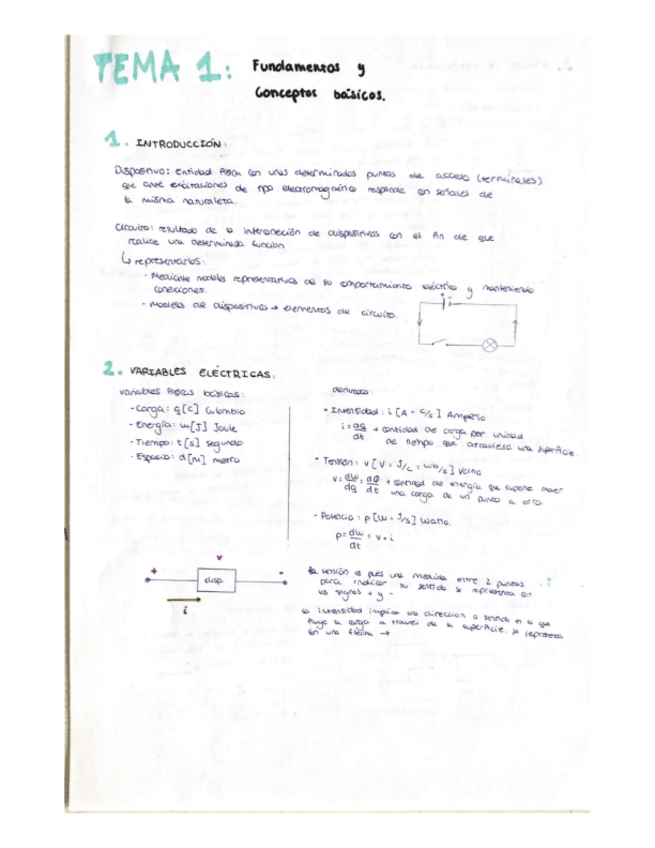 TEMA 1: Fundamentos y
Conceptos básicos.
1. INTRODUCCIÓN:
Dispositivo: entidad física con unos determinados puntos de acceso (terminales)
que ante excitaciones de tipo electromagnético responde con señales de
la misma naturaleza.
Circuito: resultado de la interconexión de dispositivos con el fin de que
realice una determinada función
↳ representarlos:
- Mediante modelos representativos de su comportamiento eléctrico y manteniendo
conexiones.
- Modelos de dispositivos → elementos de circuito.
2. VARIABLES ELÉCTRICAS:
variables físicas básicas:
- Carga: q [C] Culombio
- Energía: w [J] Joule
- Tiempo: t [s] segundo
- Espacio: d [m] metro
derivadas:
- Intensidad: i [A = C/s] Amperio
i = dq/dt → cantidad de carga por unidad
de tiempo que atraviesa una superficie.
- Tensión: v [V = J/C = Wb/s] Voltio
v = dw/dq = dΦ/dt → cantidad de energía que supone mover
una carga de un punto a otro.
- Potencia: p [W = J/s] Watio.
p = dw/dt = v · i
+ v -
disp.
i
la tensión es pues una medida entre 2 puntos
para indicar su sentido se representa con
los signos + y -
la intensidad implica una dirección o sentido en el que
fluye la carga a través de la superficie. se representa
con una flecha →